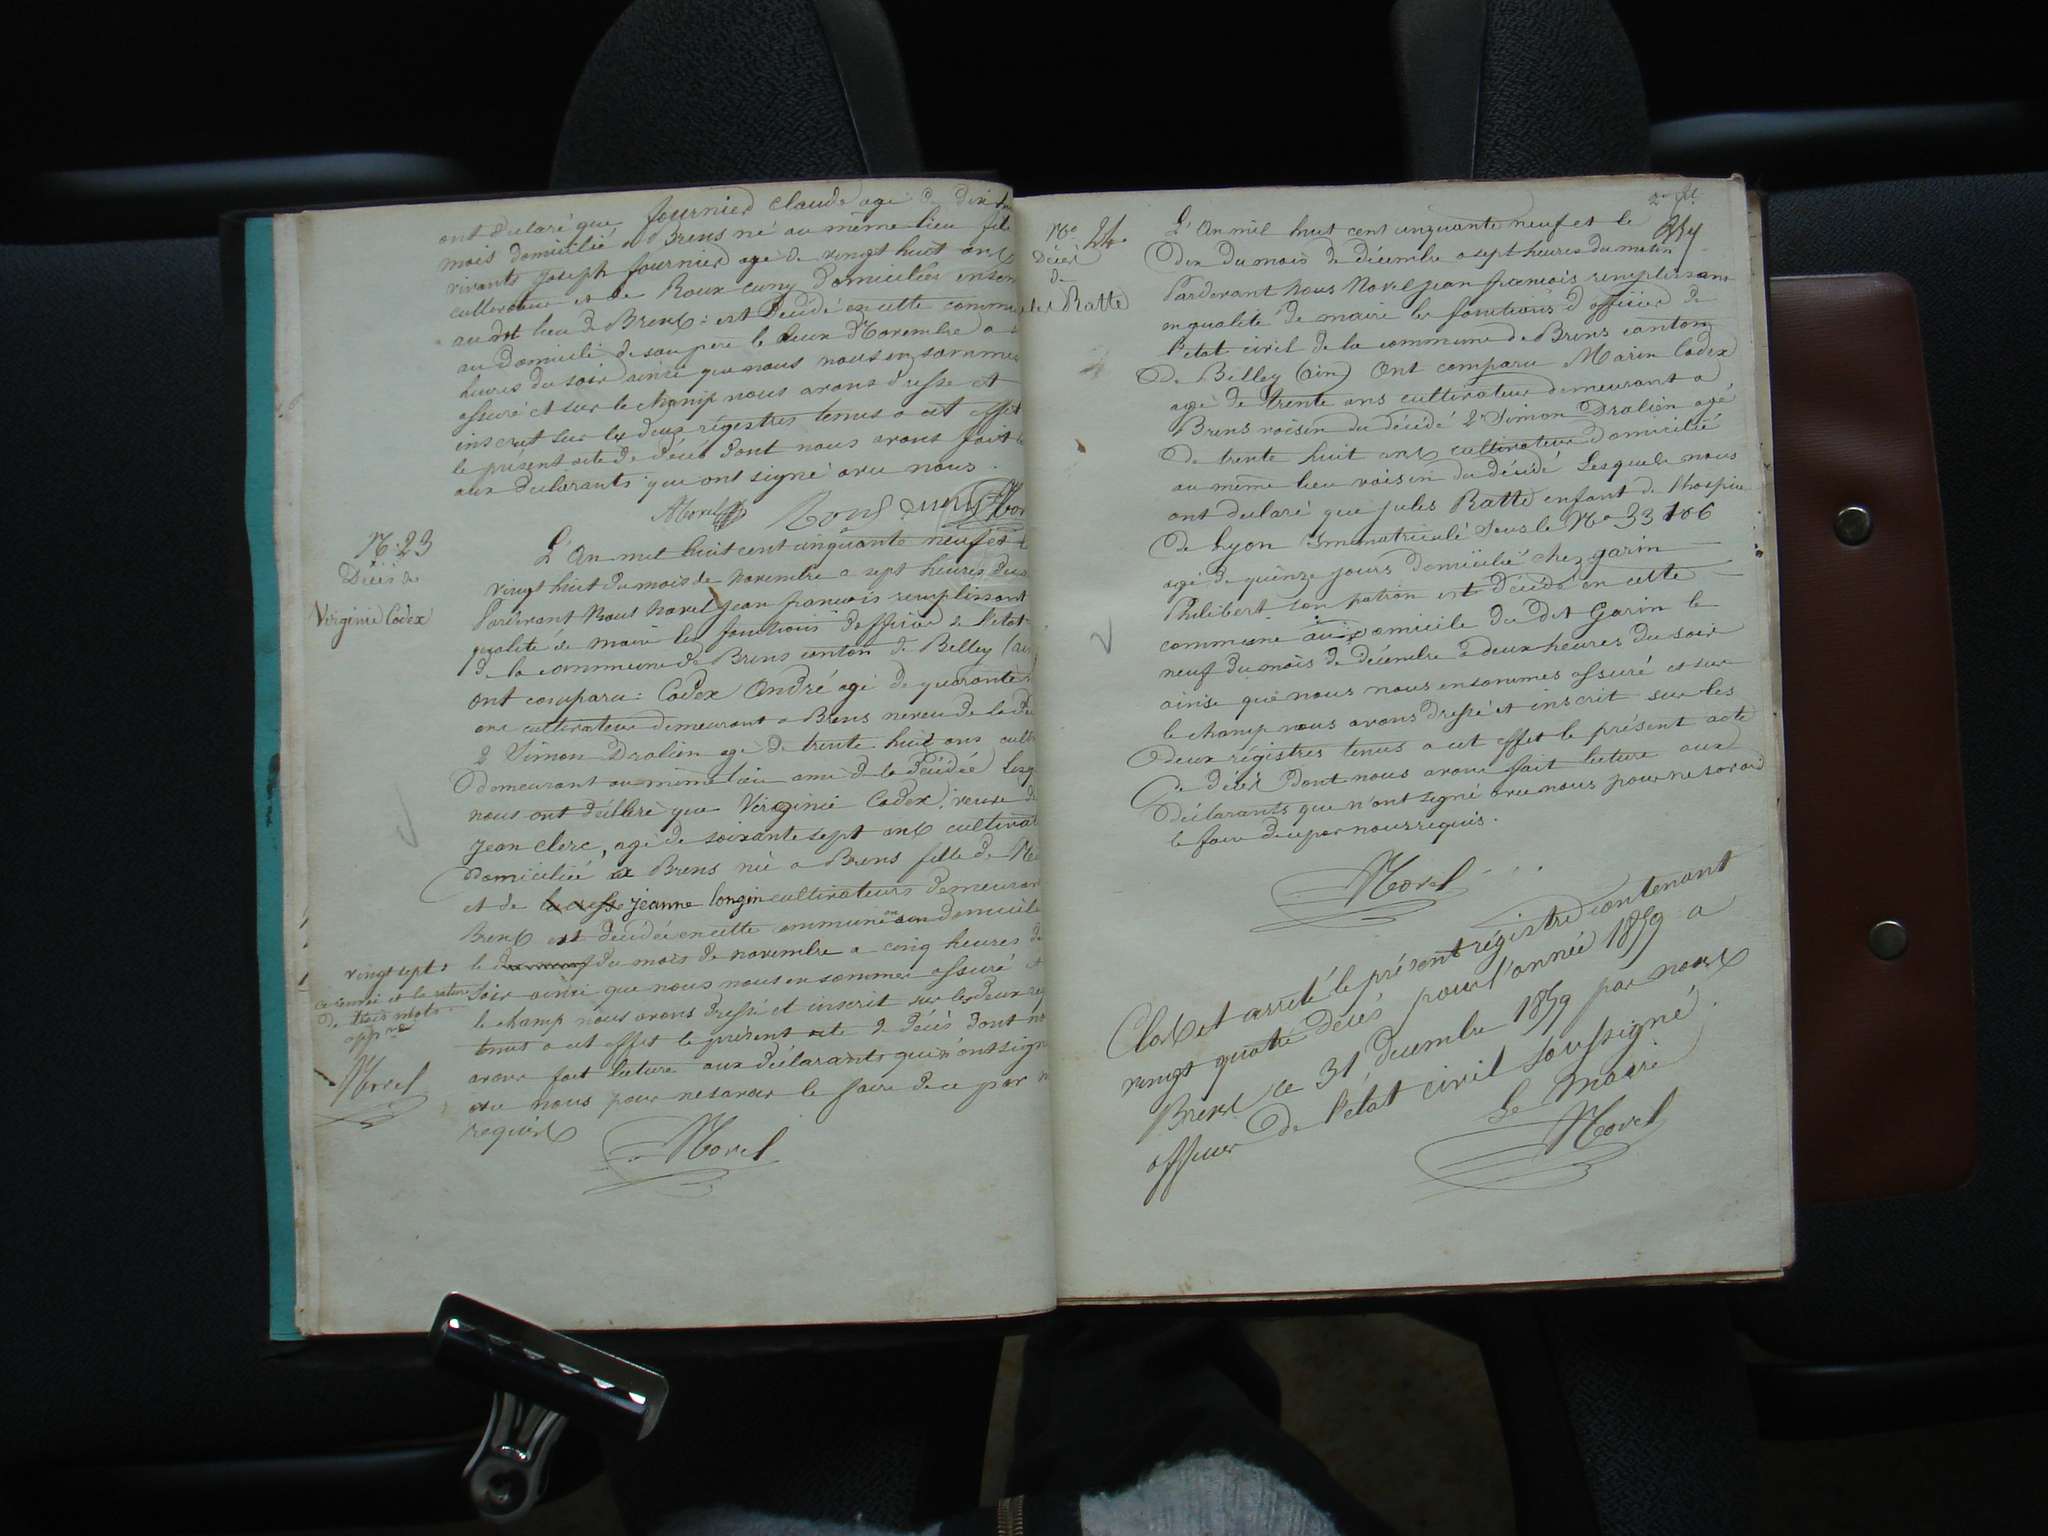 ont déclaré que fournier claude agé de dix huit
mois domicilié a Brens né au même lieu fils
vivants joseph fournier agé de vingt huit ans
cultivateur et de Roux cuny domiciliés ensem
au dit lieu de Brens: est décédé en cette commu
au domicile de son père le deux Novembre a
heures du soir ainsi que nous nous en sommes
assuré et sur le champ nous avons dressé et
inscrit sur les deux régistres tenus a cet effet
le présent acte de décès dont nous avons fait
aux declarants qui ont signé avec nous.
Morel
N. 23
Décès de
Virginie Codex
L'An mil huit cent cinquante neuf et le
vingt huit du mois de novembre a sept heures du
Pardevant Nous Morel jean francois remplissant
qualité de maire les fonctions d'officier de l'etat
de la commune de Brens canton de Belley (ain
ont comparu: Codex André agé de quarante
ans cultivateur demeurant a Brens neveu de la dé
2 Simon Dralien agé de trente huit ans culti
demeurant au même lieu ami de la décédée Lesq
nous ont déclaré que Virginie Codex, veuve de
jean clerc, agé de soixante sept ans cultivat
domiciliée a Brens née a Brens fille de
et de jeanne longin cultivateurs demeurant
Brens est décédée en cette commune en son domicile
le du mois de novembre a cinq heures du
soir ainsi que nous nous en sommes assuré et
le champ nous avons dressé et inscrit sur les deux reg
tenus a cet effet le présent acte de décès dont no
avons fait lecture aux déclarants qui n'ont sign
avec nous pour ne savoir le faire de ce par n
requis
vingt sept
ce renvoi et la rature
de trois mots
appvé
Morel
Morel
2e ft
N° 24
Décès
de
Jules Ratte
L'An mil huit cent cinquante neuf et le
dix du mois de décembre a sept heures du matin
Pardevant Nous Morel jean francois remplissant
en qualité de maire les fonctions d'officier de
l'etat civil de la commune de Brens canton
de Belley (ain) Ont comparu Marin Codex
agé de trente ans cultivateur demeurant a
Brens voisin du décédé 2° Simon Dralien agé
de trente huit ans cultivateur domicilié
au même lieu voisin du décédé Lesquels nous
ont declaré que jules Ratte enfant de l'hospice
de Lyon Immatriculé sous le N° 33106
agé de quinze jours domicilié chez garin
Philibert son patron est décédé en cette
commune au domicile du dit Garin le
neuf du mois de décembre a deux heures du soir
ainsi que nous nous en sommes assuré et sur
le champ nous avons dressé et inscrit sur les
deux régistres tenus a cet effet le présent acte
de décès dont nous avons fait lecture aux
déclarants que n'ont signé avec nous pour ne savoir
le faire de ce par nous requis.
Morel
Clos et arreté le présent régistre contenant
vingt quatre décès pour l'année 1859 a
Brens ce 31 decembre 1859 par nous
officier de l'état civil soussigné
Le Maire
Morel